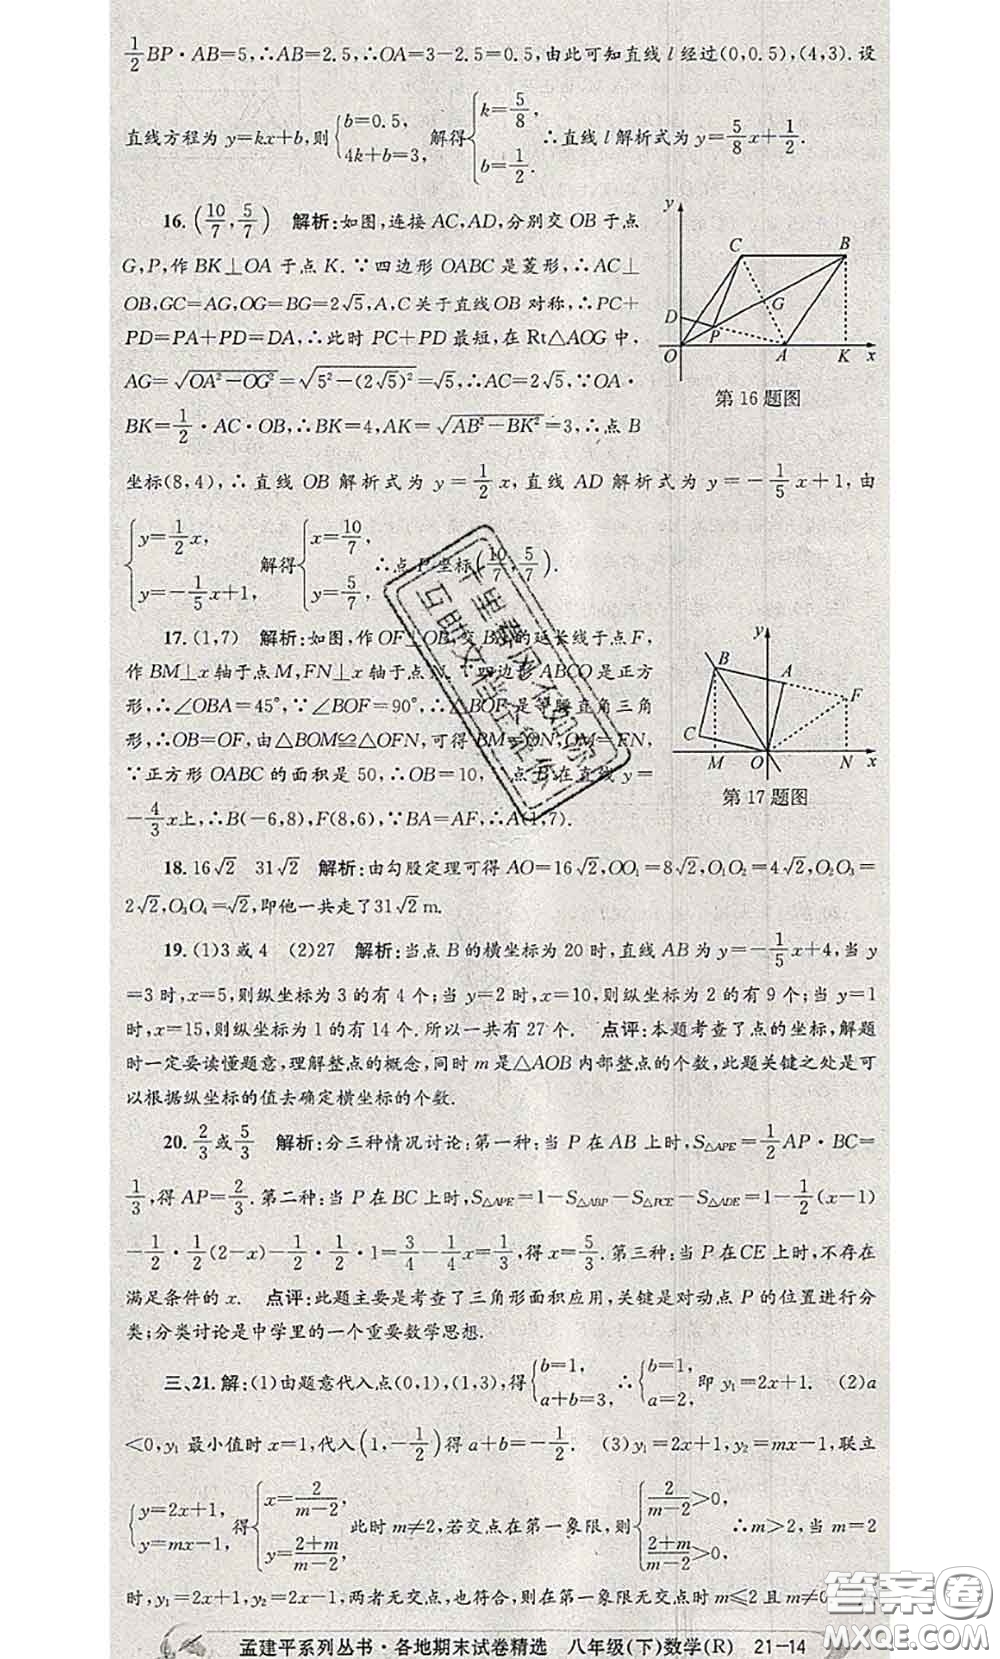 1/2 BP·AB=5,∴AB=2.5,∴OA=3-2.5=0.5,由此可知直线 l 经过(0,0.5),(4,3).设
直线方程为 y=kx+b,则{b=0.5, 4k+b=3, 解得{k=5/8, b=1/2. ∴直线 l 解析式为 y=5/8x+1/2.
16.(10/7,5/7) 解析:如图,连接 AC,AD,分别交 OB 于点
G,P,作 BK⊥OA 于点 K.∵四边形 OABC 是菱形,∴AC⊥
OB,GC=AG,OG=BG=2√5,A,C 关于直线 OB 对称,∴PC+
PD=PA+PD=DA,∴此时 PC+PD 最短,在 Rt△AOG 中,
AG=√(OA²-OG²)=√(5²-(2√5)²)=√5,∴AC=2√5,∵OA·
BK=1/2·AC·OB,∴BK=4,AK=√(AB²-BK²)=3,∴点 B
坐标(8,4),∴直线 OB 解析式为 y=1/2x,直线 AD 解析式为 y=-1/5x+1,由
{y=1/2x, y=-1/5x+1, 解得{x=10/7, y=5/7, ∴点 P 坐标(10/7,5/7).
y
C
B
G
D
P
O
A
K
x
第16题图
17.(1,7) 解析:如图,作 OF⊥OB,交 BA 的延长线于点 F,
作 BM⊥x 轴于点 M,FN⊥x 轴于点 N.∵四边形 ABCO 是正方
形,∴∠OBA=45°,∵∠BOF=90°,∴△BOF 是等腰直角三角
形,∴OB=OF,由△BOM≌△OFN,可得 BM=ON,OM=FN,
∵正方形 OABC 的面积是 50,∴OB=10,∵点 B 在直线 y=
-4/3x上,∴B(-6,8),F(8,6),∵BA=AF,∴A(1,7).
y
B
A
F
C
M
O
N
x
第17题图
18.16√2 31√2 解析:由勾股定理可得 AO=16√2,OO₁=8√2,O₁O₂=4√2,O₂O₃=
2√2,O₃O₄=√2,即他一共走了31√2 m.
19.(1)3 或 4 (2)27 解析:当点 B 的横坐标为 20 时,直线 AB 为 y=-1/5x+4,当 y
=3 时,x=5,则纵坐标为 3 的有 4 个;当 y=2 时,x=10,则纵坐标为 2 的有 9 个;当 y=1
时,x=15,则纵坐标为 1 的有 14 个.所以一共有 27 个. 点评:本题考查了点的坐标,解题
时一定要读懂题意,理解整点的概念,同时 m 是△AOB 内部整点的个数,此题关键之处是可
以根据纵坐标的值去确定横坐标的个数.
20.2/3或5/3 解析:分三种情况讨论:第一种:当 P 在 AB 上时,S△APE=1/2AP·BC=
1/3,得 AP=2/3.第二种:当 P 在 BC 上时,S△APE=1-S△ABP-S△PCE-S△ADE=1-1/2(x-1)
-1/2·1/2(2-x)-1/2·1/2·1=3/4-1/4x=1/3,得 x=5/3.第三种:当 P 在 CE 上时,不存在
满足条件的 x. 点评:此题主要是考查了三角形面积应用,关键是对动点 P 的位置进行分
类;分类讨论是中学里的一个重要数学思想.
三、21.解:(1)由题意代入点(0,1),(1,3),得{b=1, a+b=3, ∴{b=1, a=2, 即 y₁=2x+1. (2)a
<0,y₁ 最小值时 x=1,代入(1,-1/2)得 a+b=-1/2. (3)y₁=2x+1,y₂=mx-1,联立
{y=2x+1, y=mx-1, 得{x=2/(m-2), y=(2+m)/(m-2), 此时 m≠2,若交点在第一象限,则{2/(m-2)>0, (2+m)/(m-2)>0, ∴m>2,当 m=2
时,y₁=2x+1,y₂=2x-1,两者无交点,也符合,则在第一象限无交点时 m≤2 且 m≠0
孟建平系列丛书·各地期末试卷精选 八年级(下)数学(R) 21-14
千里春风不如你
互助文档全靠你
答案圈
MXQE.COM